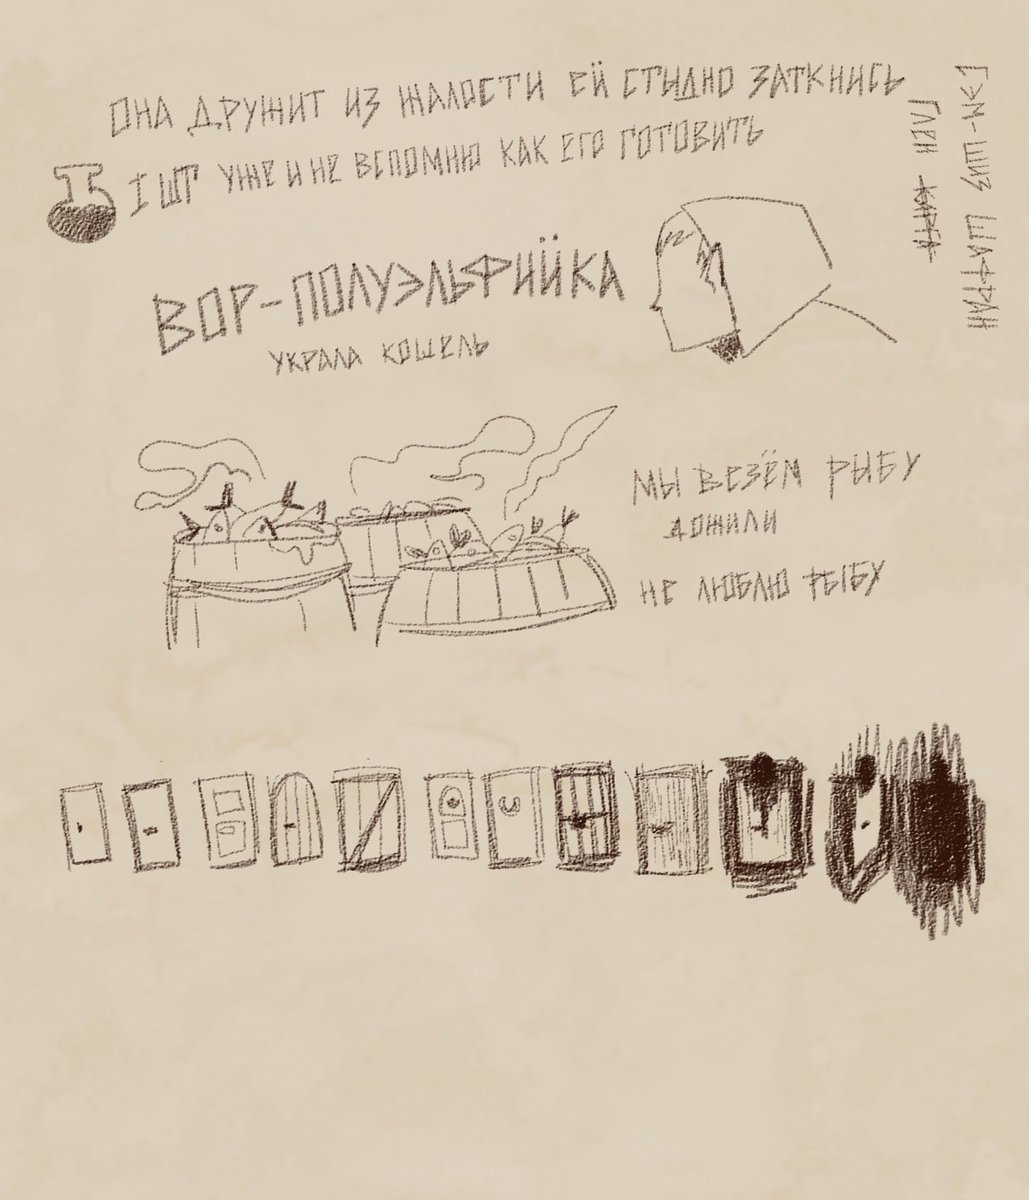 ОНА ДРУЖИТ ИЗ ЖАЛОСТИ ЕЙ СТЫДНО ЗАТКНИСЬ
1 ШТ УЖЕ И НЕ ВСПОМНЮ КАК ЕГО ГОТОВИТЬ
ВОР-ПОЛУЭЛЬФИЙКА
УКРАЛА КОШЕЛЬ
МЫ ВЕЗЁМ РЫБУ
ДОЖИЛИ
НЕ ЛЮБЛЮ РЫБУ